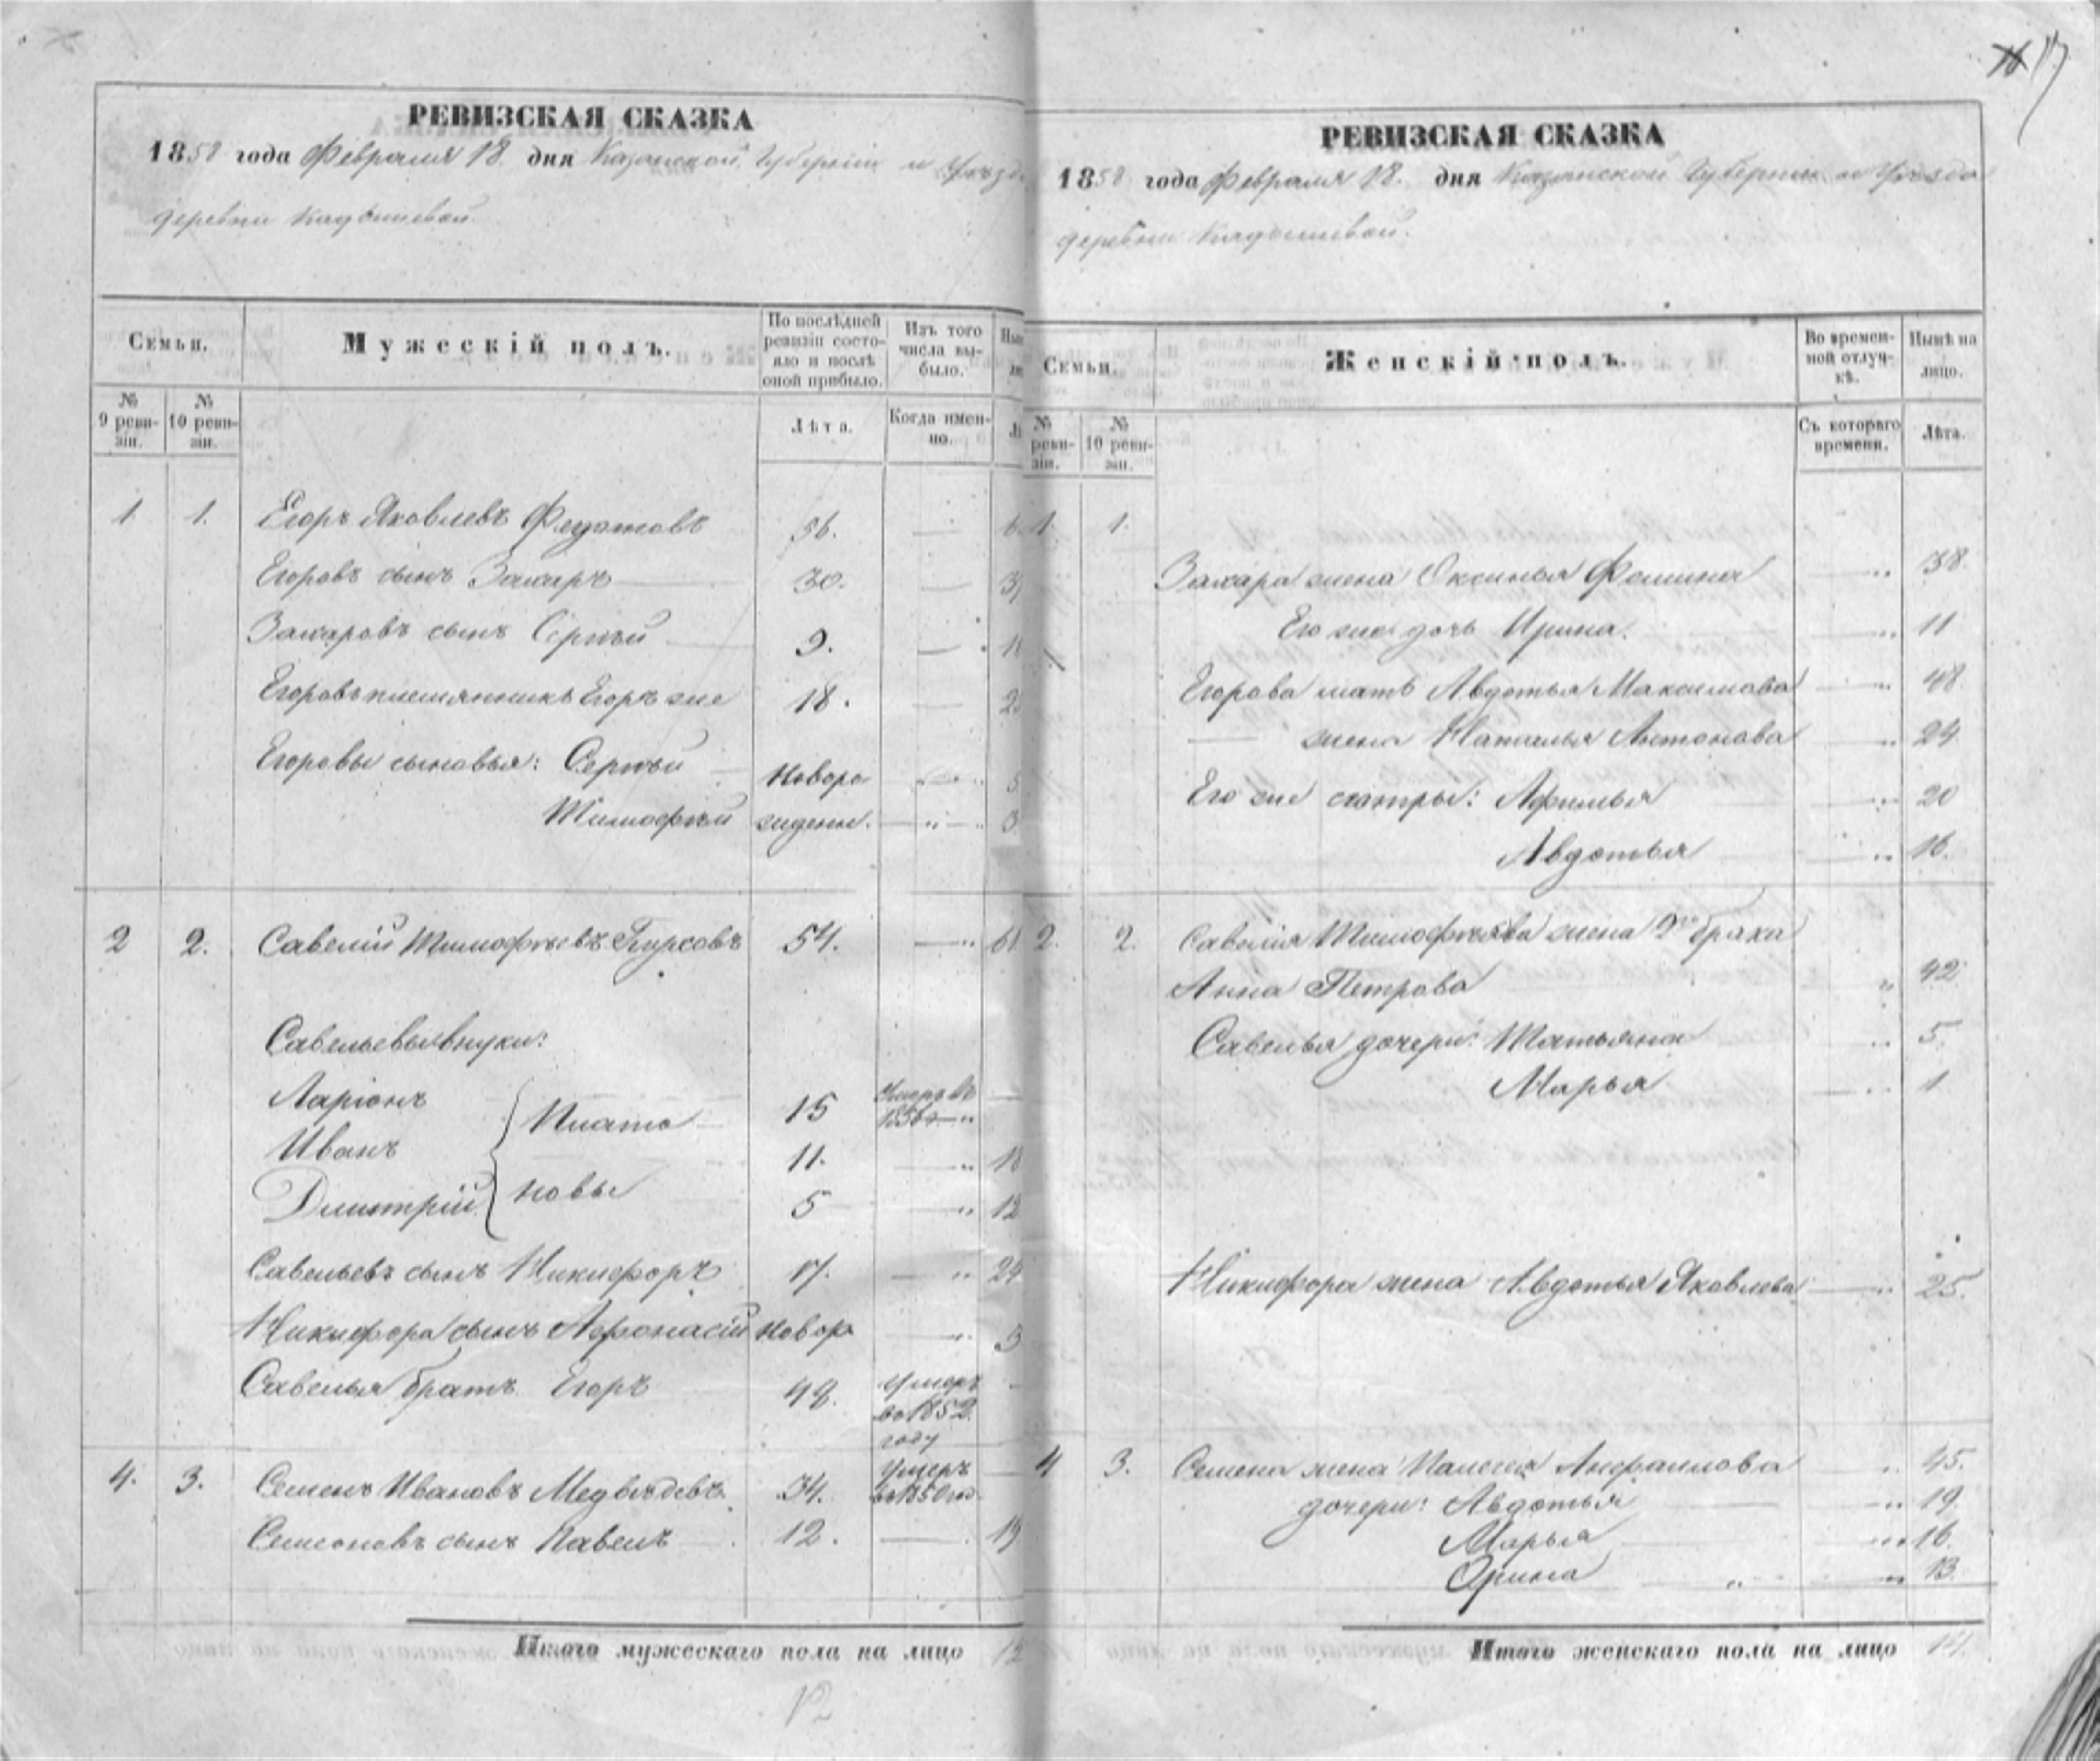 17
РЕВИЗСКАЯ СКАЗКА
1858 года Февраля 18 дня Казанской Губерніи и Уѣзда
деревни Кадышевой.
Семьи.
Мужескій полъ.
По послѣдней ревизіи состояло и послѣ оной прибыло.
Изъ того числа выбыло.
№ 9 ревизіи.
№ 10 ревизіи.
Лѣта.
Когда именно.
1. 1. Егоръ Яковлевъ Федотовъ 56.
Егоровъ сынъ Захаръ 30.
Захаровъ сынъ Сергѣй 9.
Егоровъ племянникъ Егоръ же 18.
Егоровы сыновья: Сергѣй Новоро
Тимофѣй жденн.
2 2. Савелій Тимофѣевъ 54. 61
Савельевы внуки:
Ларіонъ Плато 15 Умеръ въ 1856
Иванъ 11. 18
Дмитрій новы 5 12
Савельевъ сынъ Никифоръ 17. 24
Никифора сынъ Афонасій Новор 3
Савелья братъ Егоръ 49. Умеръ
во 1852
году
4. 3. Семенъ Ивановъ Медвѣдевъ. 34. Умеръ
во 1850 год
Семеоновъ сынъ Павелъ 12. 19
Итого мужескаго пола на лицо 12
12
РЕВИЗСКАЯ СКАЗКА
1858 года Февраля 18. дня Казанской Губерніи и Уѣзда
деревни Кадышевой.
Семьи.
Женскій полъ.
Во временной отлучкѣ.
Нынѣ на лицо.
№ ревизіи.
№ 10 ревизіи.
Съ котораго времени.
Лѣта.
1. 1.
Захара жена Оксинья Фомина 38
Его же дочь Ирина. 11
Егорова мать Авдотья Максимова 48
жена Наталья Антонова 24
Его же сестры: Афимья 20
Авдотья 16.
2. 2. Савелія Тимофѣева жена 2го брака
Анна Петрова 42
Савелья дочери: Татьяна 5.
Марья 1
Никифора жена Авдотья Яковлева 25.
4 3. Семена жена Палегея 45.
дочери: Авдотья 19.
Марья 16.
Орина 13.
Итого женскаго пола на лицо